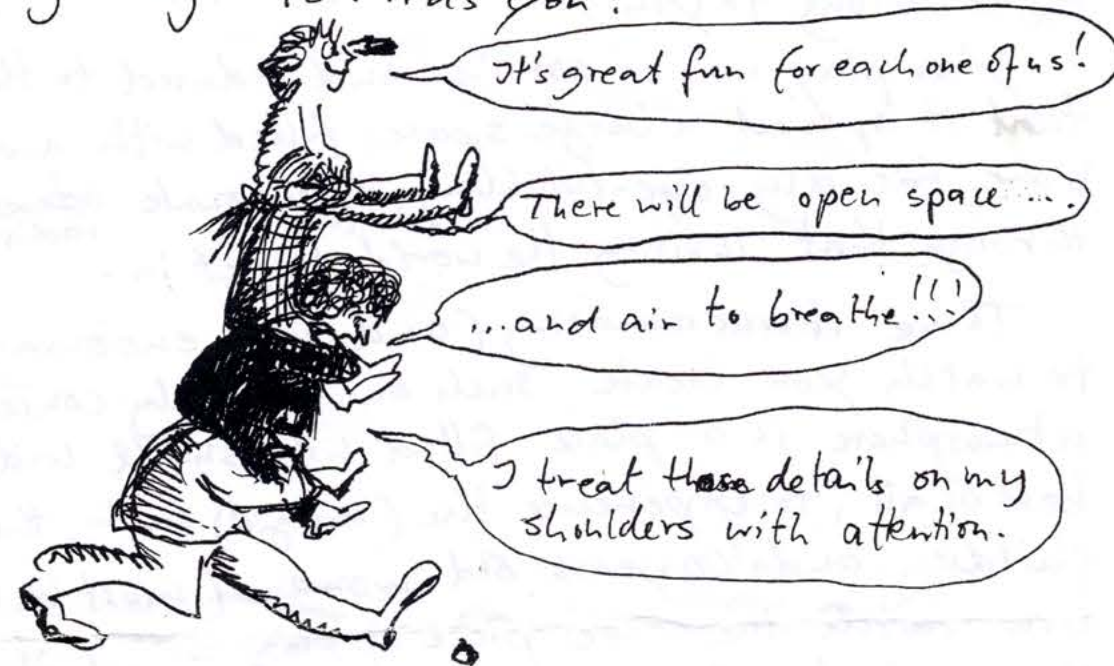 It's great fun for each one of us!
There will be open space ....
...and air to breathe!!!
I treat those details on my
shoulders with attention.